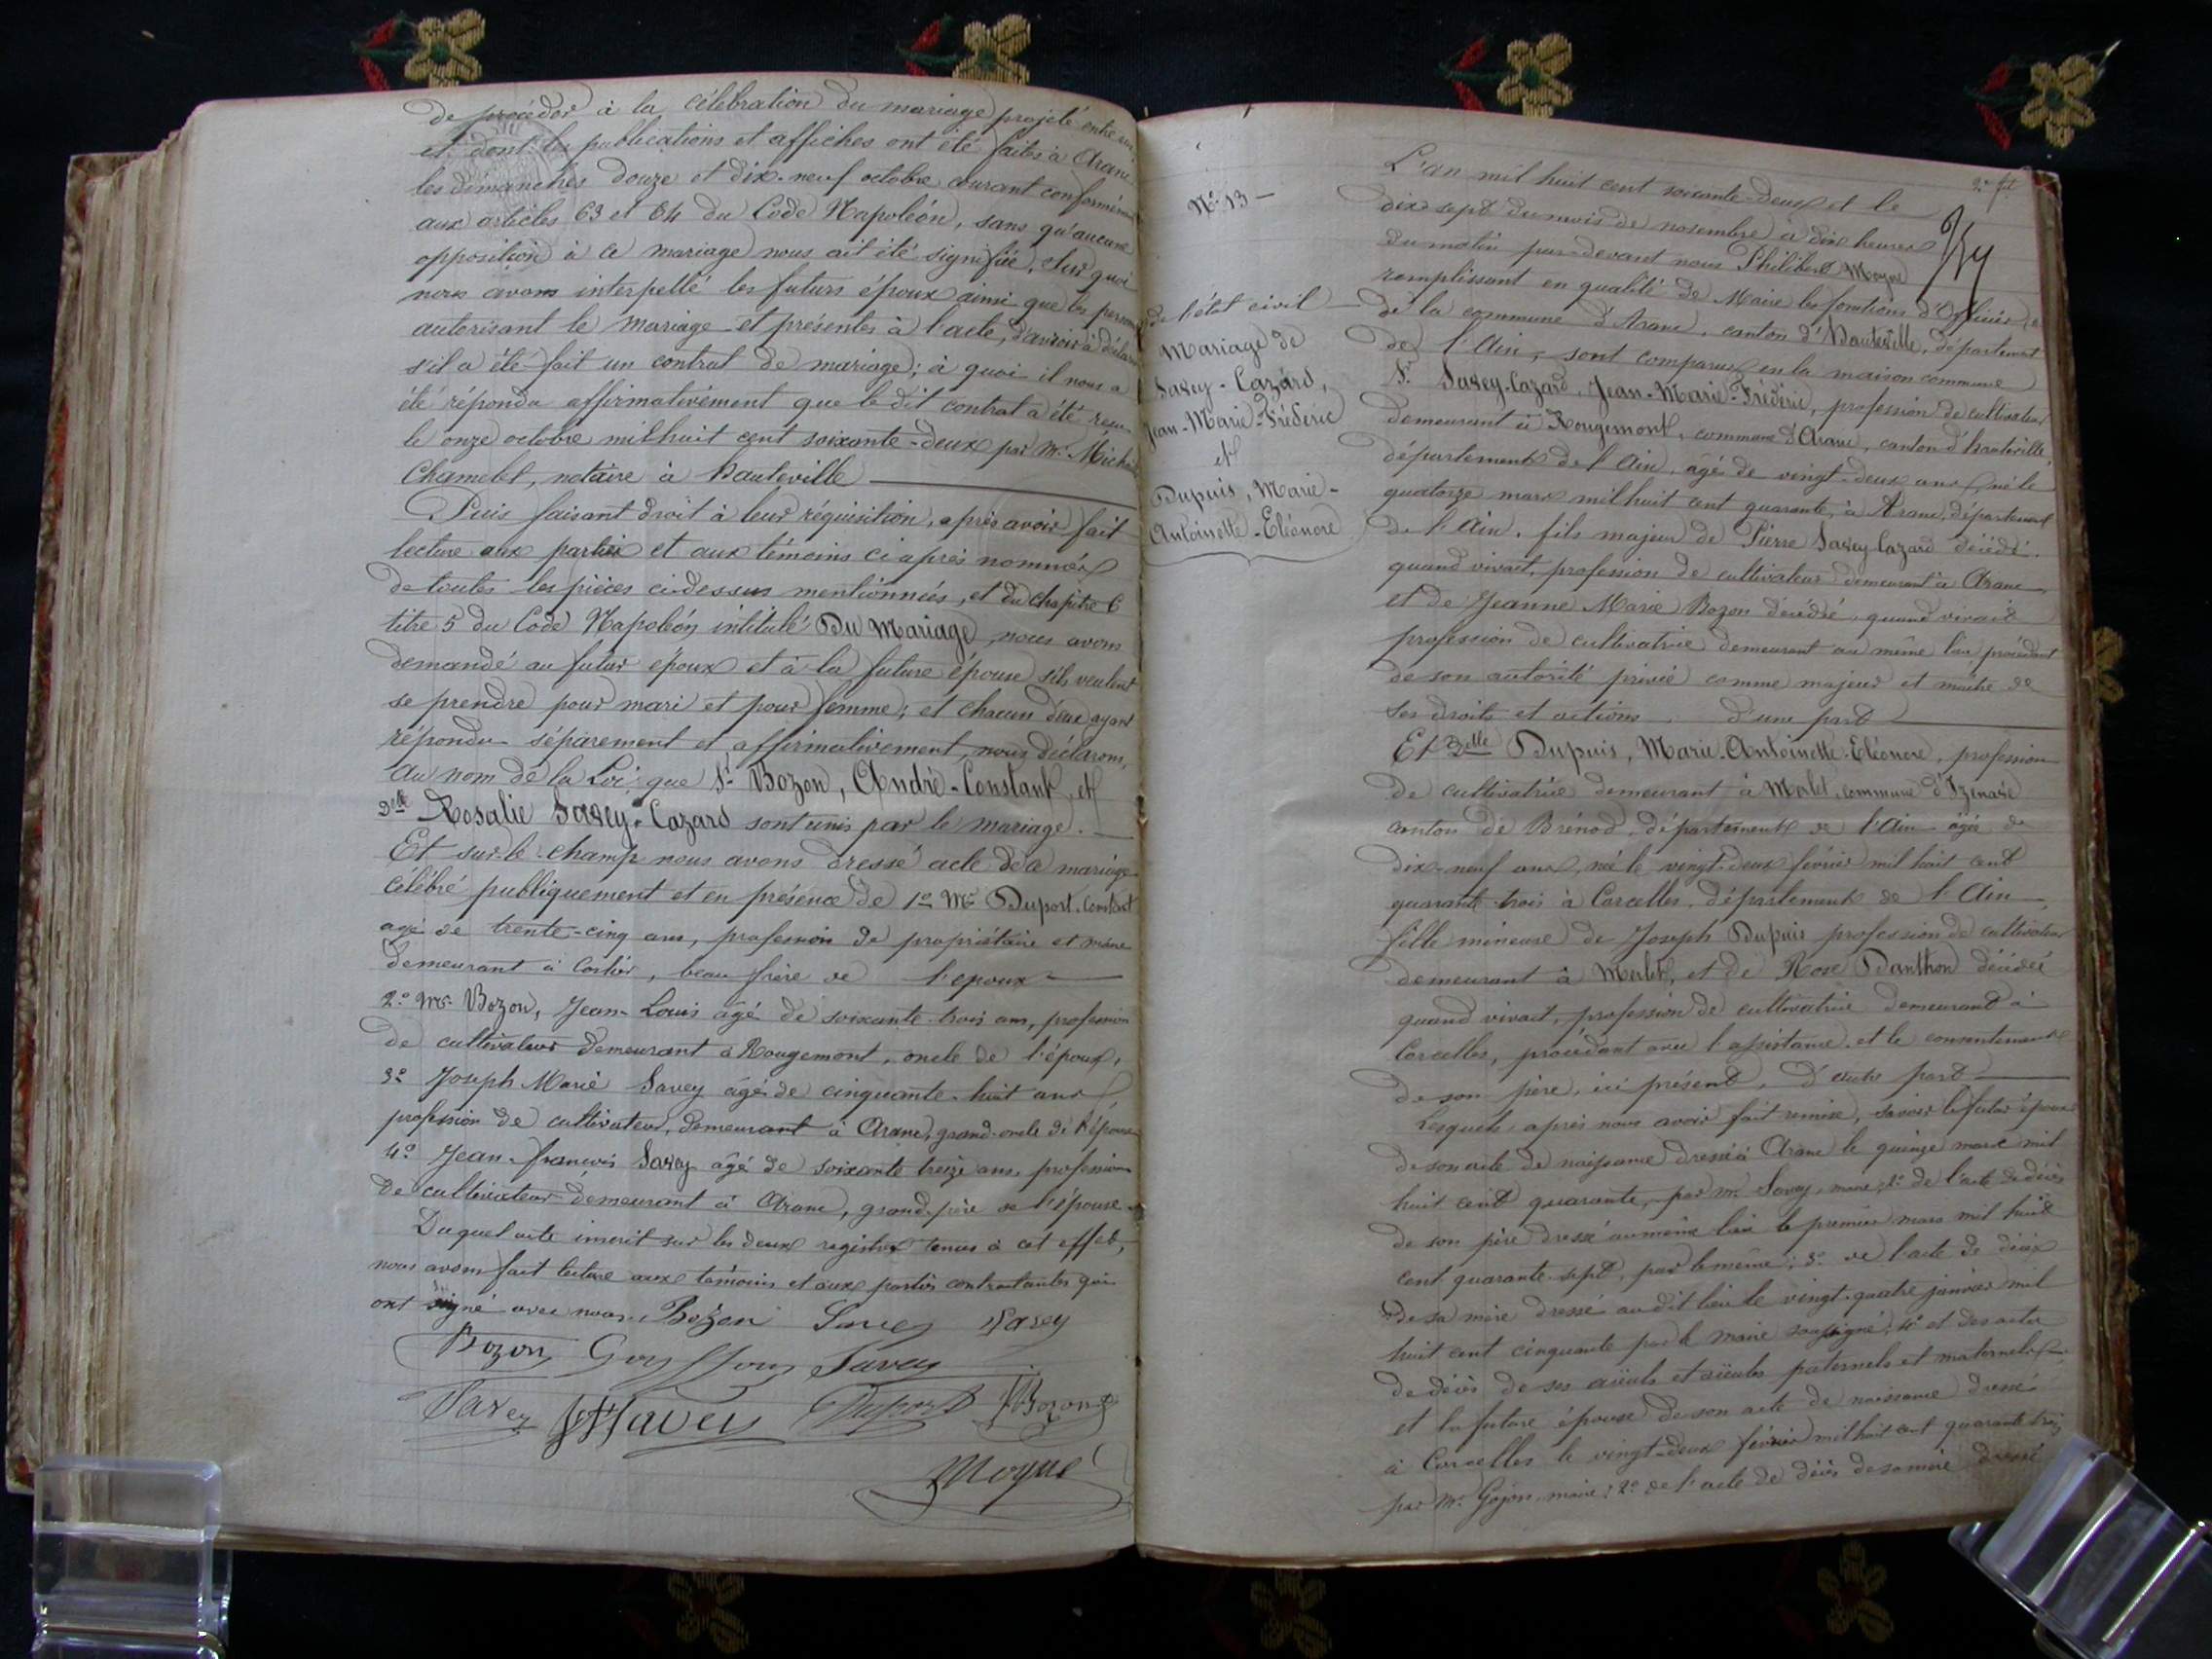 de procéder à la célébration du mariage projeté entre eux
et dont les publications et affiches ont été faites à Aranc
les dimanches douze et dix-neuf octobre courant conformément
aux articles 63 et 64 du Code Napoléon, sans qu'aucune
opposition à ce mariage nous ait été signifiée, sur quoi
nous avons interpellé les futurs époux ainsi que les personnes
autorisant le mariage et présentes à l'acte, d'avoir à déclarer
s'il a été fait un contrat de mariage; à quoi il nous a
été répondu affirmativement que le dit contrat a été reçu
le onze octobre mil huit cent soixante-deux par Mr. Michel
Chamelet, notaire à Hauteville
Puis faisant droit à leur réquisition, après avoir fait
lecture aux parties et aux témoins ci après nommés
de toutes les pièces ci-dessus mentionnées, et du chapitre 6
titre 5 du Code Napoléon intitulé Du Mariage, nous avons
demandé au futur époux et à la future épouse s'ils veulent
se prendre pour mari et pour femme; et chacun d'eux ayant
répondu séparément et affirmativement, nous déclarons,
au nom de la Loi, que Sr. Bozon, André-Constant, et
Delle Rosalie Savey-Cazard sont unis par le mariage.
Et sur-le-champ nous avons dressé acte de ce mariage
célébré publiquement et en présence de 1o Mr Duport Constant
agé de trente-cinq ans, profession de propriétaire et maire
demeurant à Corlier, beau frère de l'époux
2o Mr. Bozon, Jean-Louis âgé de soixante-trois ans, profession
de cultivateur demeurant à Rougemont, oncle de l'époux,
3o Joseph Marie Savey âgé de cinquante-huit ans
profession de cultivateur, demeurant à Aranc, grand-oncle de l'épouse
4o Jean-françois Savey âgé de soixante treize ans, profession
de cultivateur demeurant à Aranc, grand-père de l'épouse
Duquel acte inscrit sur les deux registres tenus à cet effet,
nous avons fait lecture aux témoins et aux parties contractantes qui
ont signé avec nous. Bozon Savey Savey
Bozon Savey
Savey Savey Duport Bozon
Moyne
No 13
de l'état civil
Mariage de
Savey-Cazard,
Jean-Marie-Fréderic
et
Dupuis, Marie-
Antoinette-Eléonore
2e ft
L'an mil huit cent soixante-deux et le
dix sept du mois de novembre à dix heures
du matin par-devant nous Philibert Moyne
remplissant en qualité de Maire les fonctions d'Officier
de la commune d'Aranc, canton d'Hauteville, département
de l'Ain, sont comparus en la maison commune
Sr. Savey-Cazard, Jean-Marie-Fréderic, profession de cultivateur
demeurant à Rougemont, commune d'Aranc, canton d'hauteville
département de l'Ain, âgé de vingt-deux ans, né le
quatorze mars mil huit cent quarante, à Aranc, département
de l'Ain, fils majeur de Pierre Savey Cazard décédé
quand vivait, profession de cultivateur demeurant à Aranc
et de Jeanne Marie Bozon décédée, quand vivait
profession de cultivatrice demeurant au même lieu, procédant
de son autorité privée comme majeur et maître de
ses droits et actions. D'une part
Et Delle Dupuis, Marie-Antoinette-Eléonore, profession
de cultivatrice demeurant à Merlet, commune d'Izenave
canton de Brénod, département de l'Ain âgée de
dix-neuf ans, née le vingt-deux février mil huit cent
quarante trois à Corcelles, département de l'Ain,
fille mineure de Joseph Dupuis profession de cultivateur
demeurant à Merlet, et de Rose Danthon décédée
quand vivait, profession de cultivatrice demeurant à
Corcelles, procédant avec l'assistance et le consentement
de son père, ici présent, D'autre part
Lesquels, après nous avoir fait remise, savoir le futur époux
de son acte de naissance dressé à Aranc le quinze mars mil
huit cent quarante, par Mr. Savey, maire; 2o de l'acte de décès
de son père dressé au même lieu le premier mars mil huit
cent quarante-sept, par le même; 3o de l'acte de décès
de sa mère dressé au dit lieu le vingt-quatre janvier mil
huit cent cinquante par le maire soussigné; 4o et des actes
de décès de ses aïeuls et aïeules paternels et maternels
et la future épouse de son acte de naissance dressé
à Corcelles le vingt-deux février mil huit cent quarante trois
par Mr. Gojon, maire; 2o de l'acte de décès de sa mère dressé